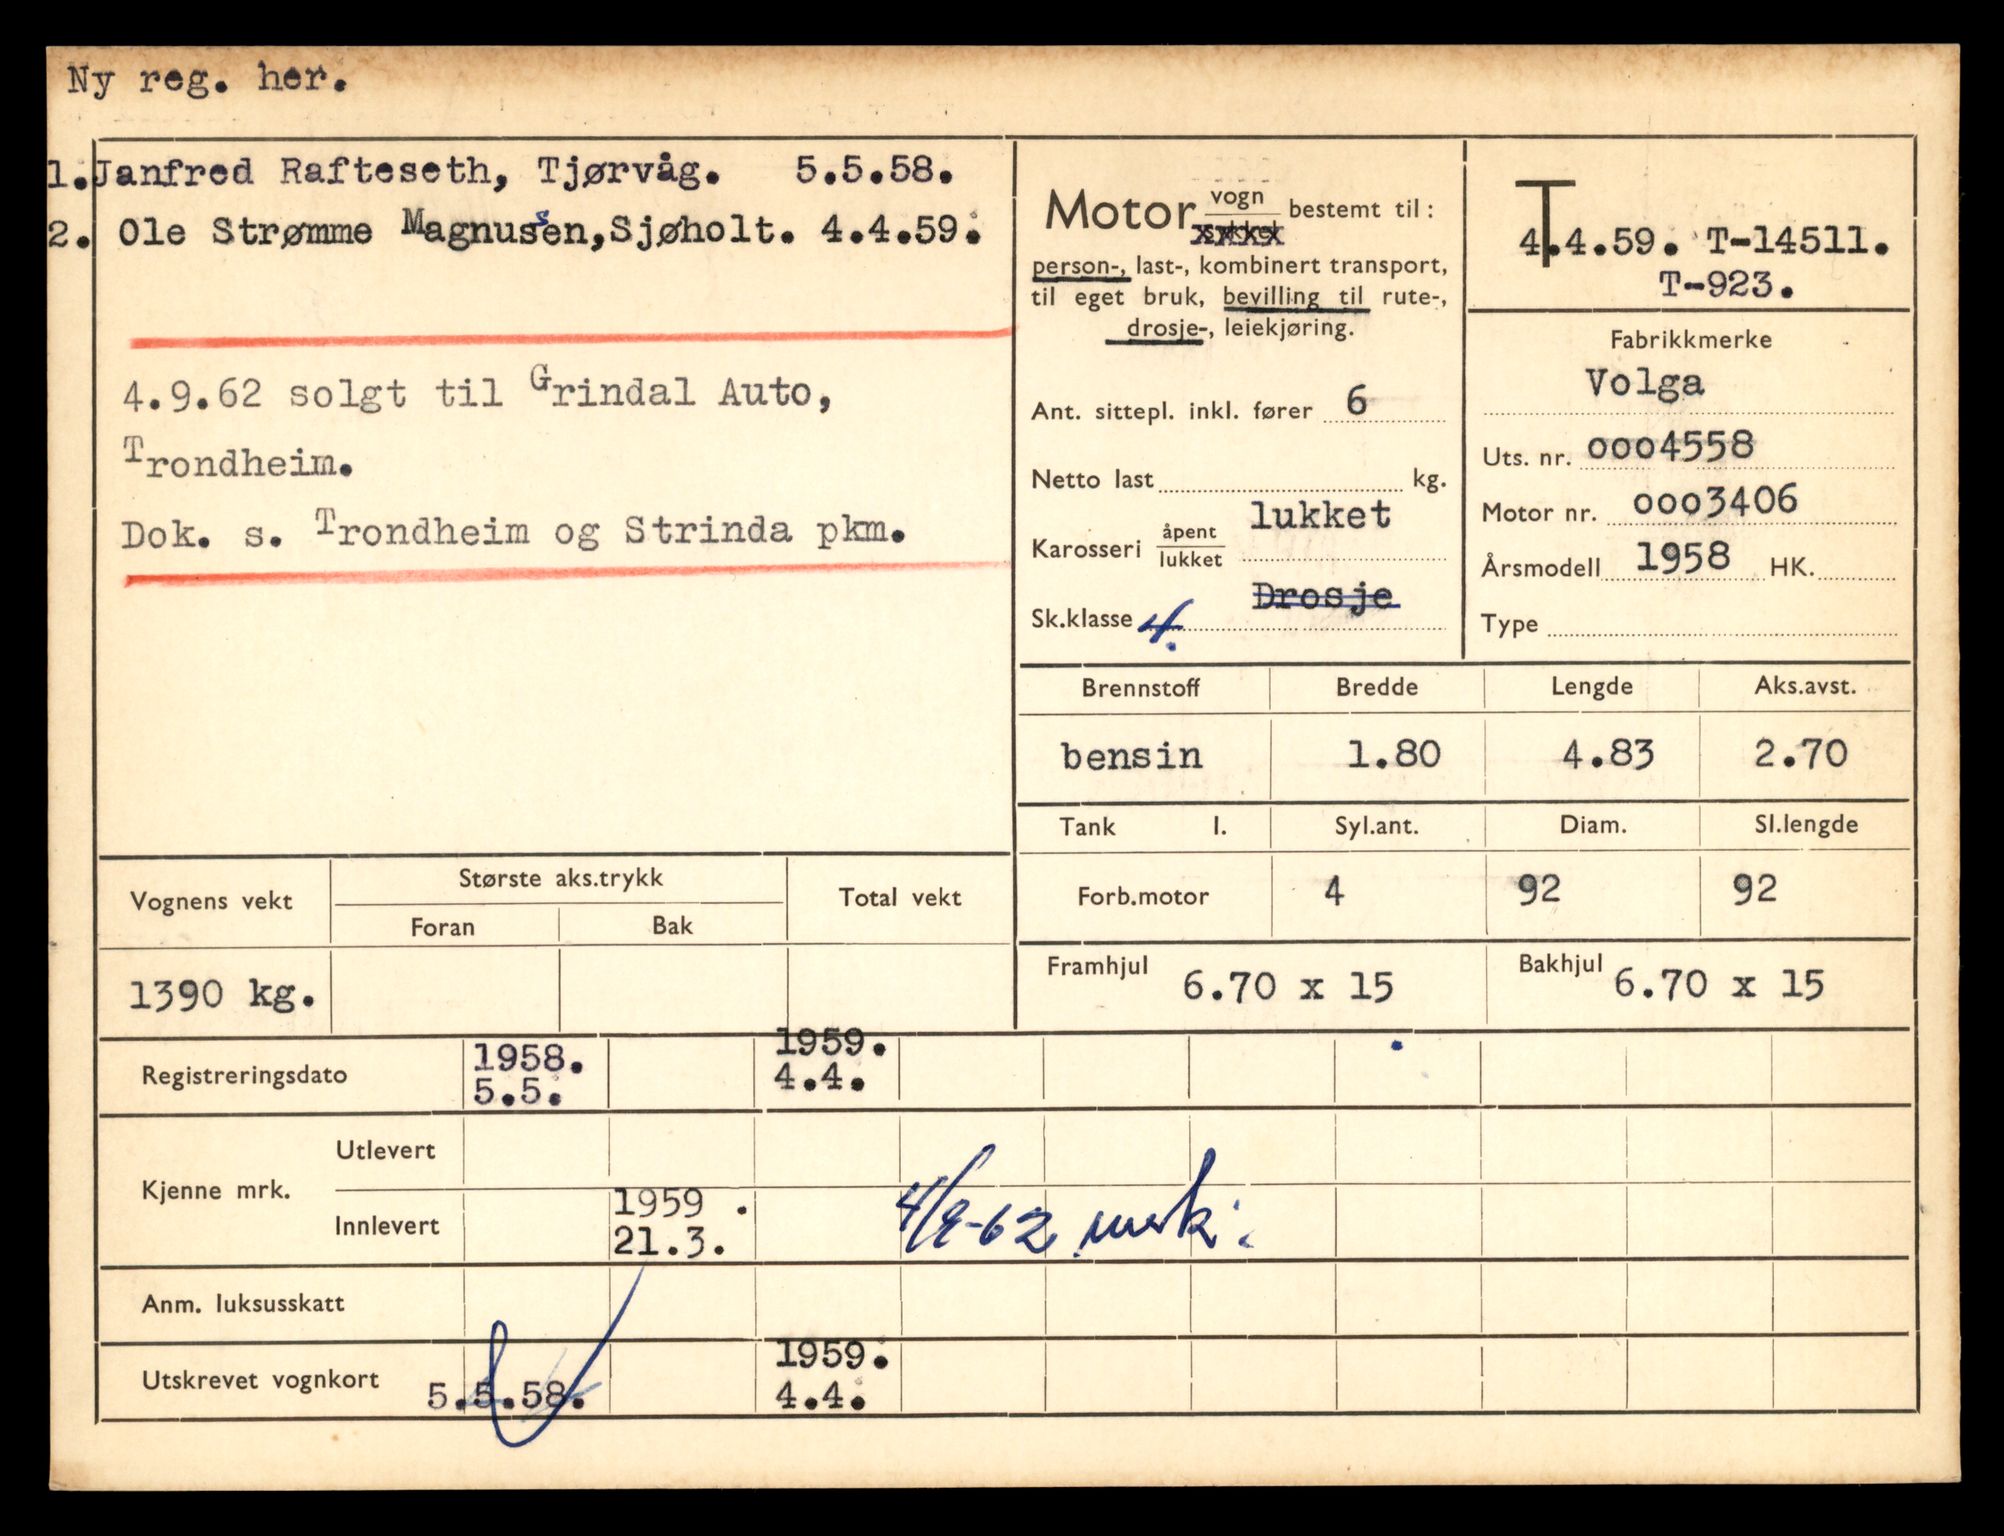 Ny reg. her.
1. Janfred Rafteseth, Tjørvåg. 5.5.58.
2. Ole Strømme Magnussen, Sjøholt. 4.4.59.
4.9.62 solgt til Grindal Auto,
Trondheim.
Dok. s. Trondheim og Strinda pkm.
Motor vogn
sykkel bestemt til:
person-, last-, kombinert transport,
til eget bruk, bevilling til rute-,
drosje-, leiekjøring.
Ant. sittepl. inkl. fører 6
Netto last kg.
Karosseri åpent
lukket lukket
Drosje
Sk.klasse 4.
T
4.4.59. T-14511.
T-923.
Fabrikkmerke
Volga
Uts. nr. ooo4558
Motor nr. ooo3406
Årsmodell 1958 HK.
Type
Brennstoff Bredde Lengde Aks.avst.
bensin 1.80 4.83 2.70
Tank l. Syl.ant. Diam. Sl.lengde
Forb.motor 4 92 92
Framhjul 6.70 x 15 Bakhjul 6.70 x 15
Vognens vekt Største aks.trykk Total vekt
Foran Bak
1390 kg.
Registreringsdato 1958. 1959.
5.5. 4.4.
Kjenne mrk. Utlevert
Innlevert 1959 .
21.3. 4/9-62 merk.
Anm. luksusskatt
Utskrevet vognkort 5.5.58. 1959.
4.4.